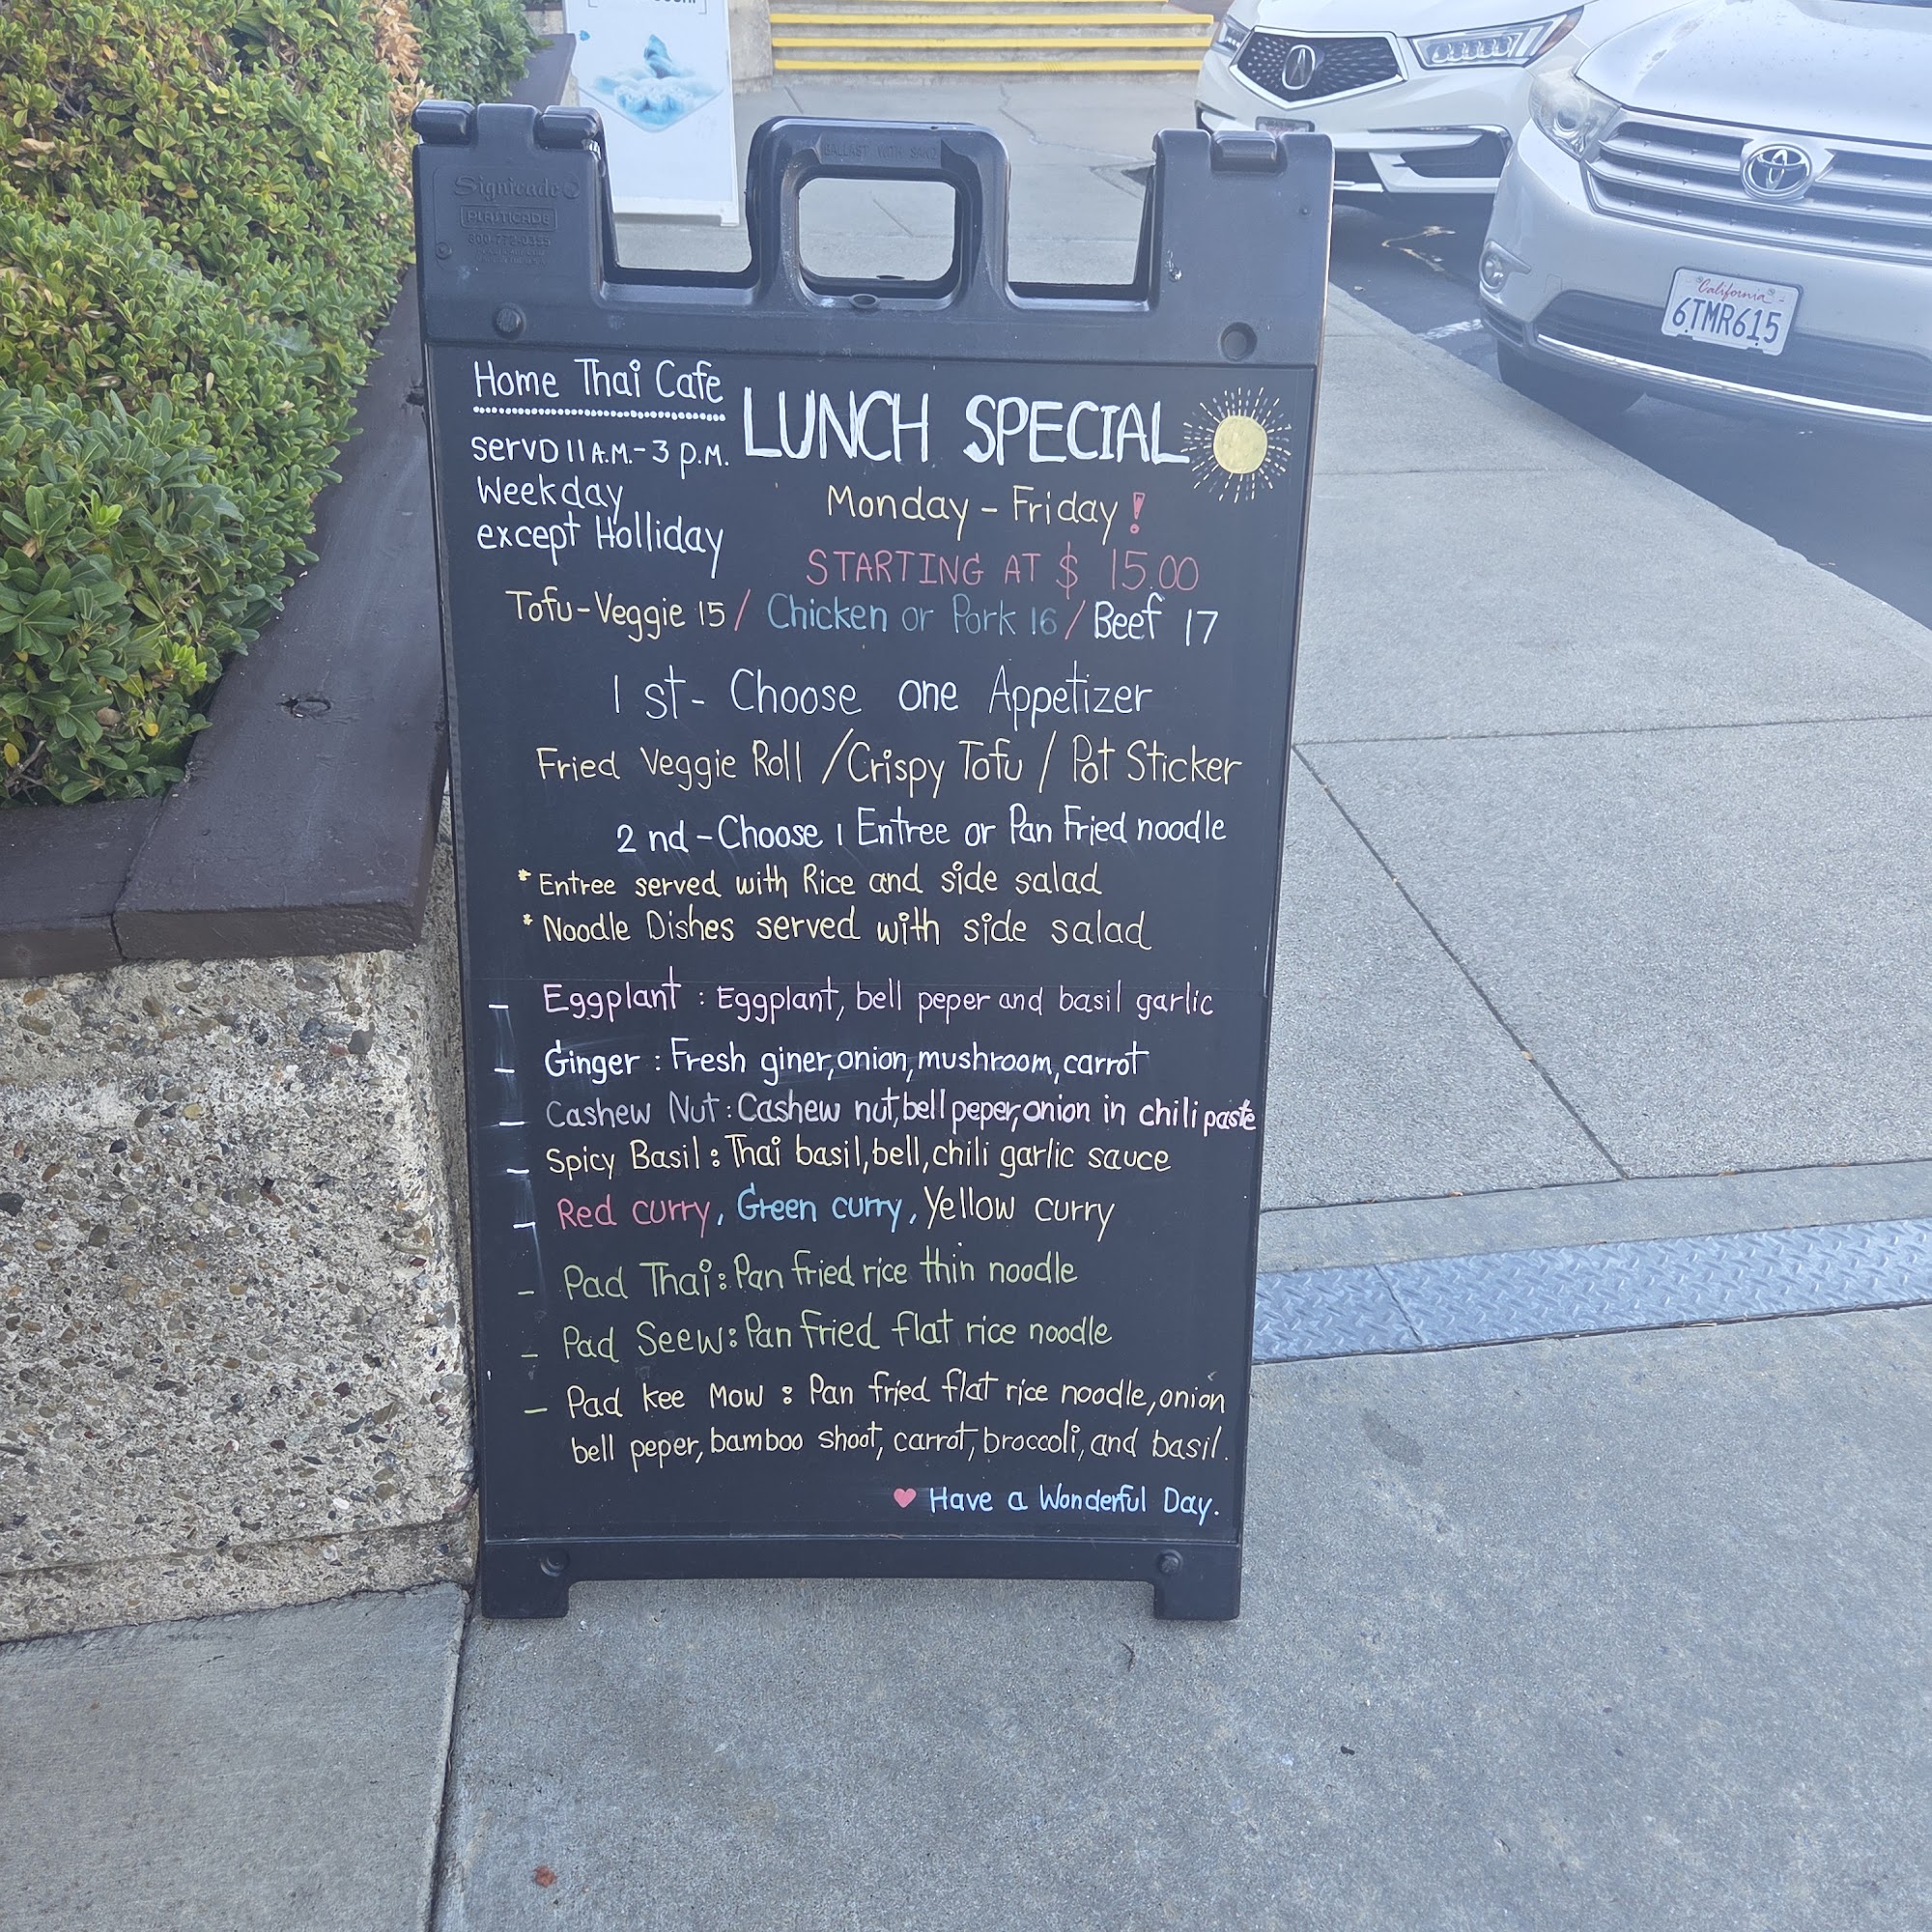 Signicade
PLASTICADE
BALLAST WITH SAND
Home Thai Cafe
servD 11 A.M.- 3 P.M.
Weekday
except Holliday
LUNCH SPECIAL
Monday - Friday!
STARTING AT $ 15.00
Tofu-Veggie 15 / Chicken or Pork 16 / Beef 17
1 st - Choose one Appetizer
Fried Veggie Roll / Crispy Tofu / Pot Sticker
2 nd - Choose 1 Entree or Pan Fried noodle
* Entree served with Rice and side salad
* Noodle Dishes served with side salad
- Eggplant : Eggplant, bell peper and basil garlic
- Ginger : Fresh giner, onion, mushroom, carrot
- Cashew Nut : Cashew nut, bell peper, onion in chili paste
- Spicy Basil : Thai basil, bell, chili garlic sauce
- Red curry, Green curry, Yellow curry
- Pad Thai : Pan fried rice thin noodle
- Pad Seew : Pan fried flat rice noodle
- Pad kee Mow : Pan fried flat rice noodle, onion
bell peper, bamboo shoot, carrot, broccoli, and basil.
♥ Have a Wonderful Day.
California
6TMR615